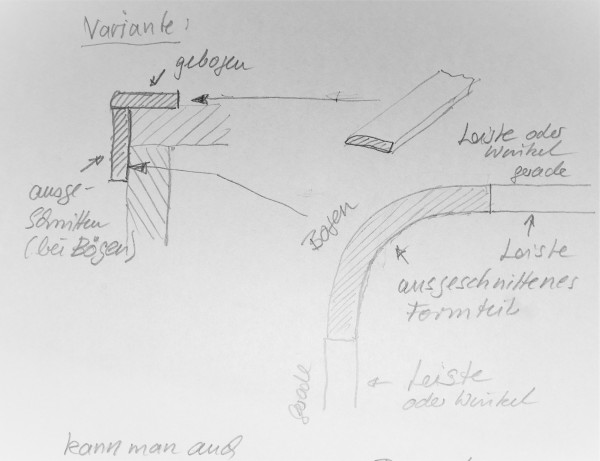 Variante:
gebogen
ausge-
schnitten
(bei Bögen)
Leiste oder
Winkel
gerade
Bogen
Leiste
ausgeschnittenes
Formteil
gerade
Leiste
oder Winkel
kann man auch